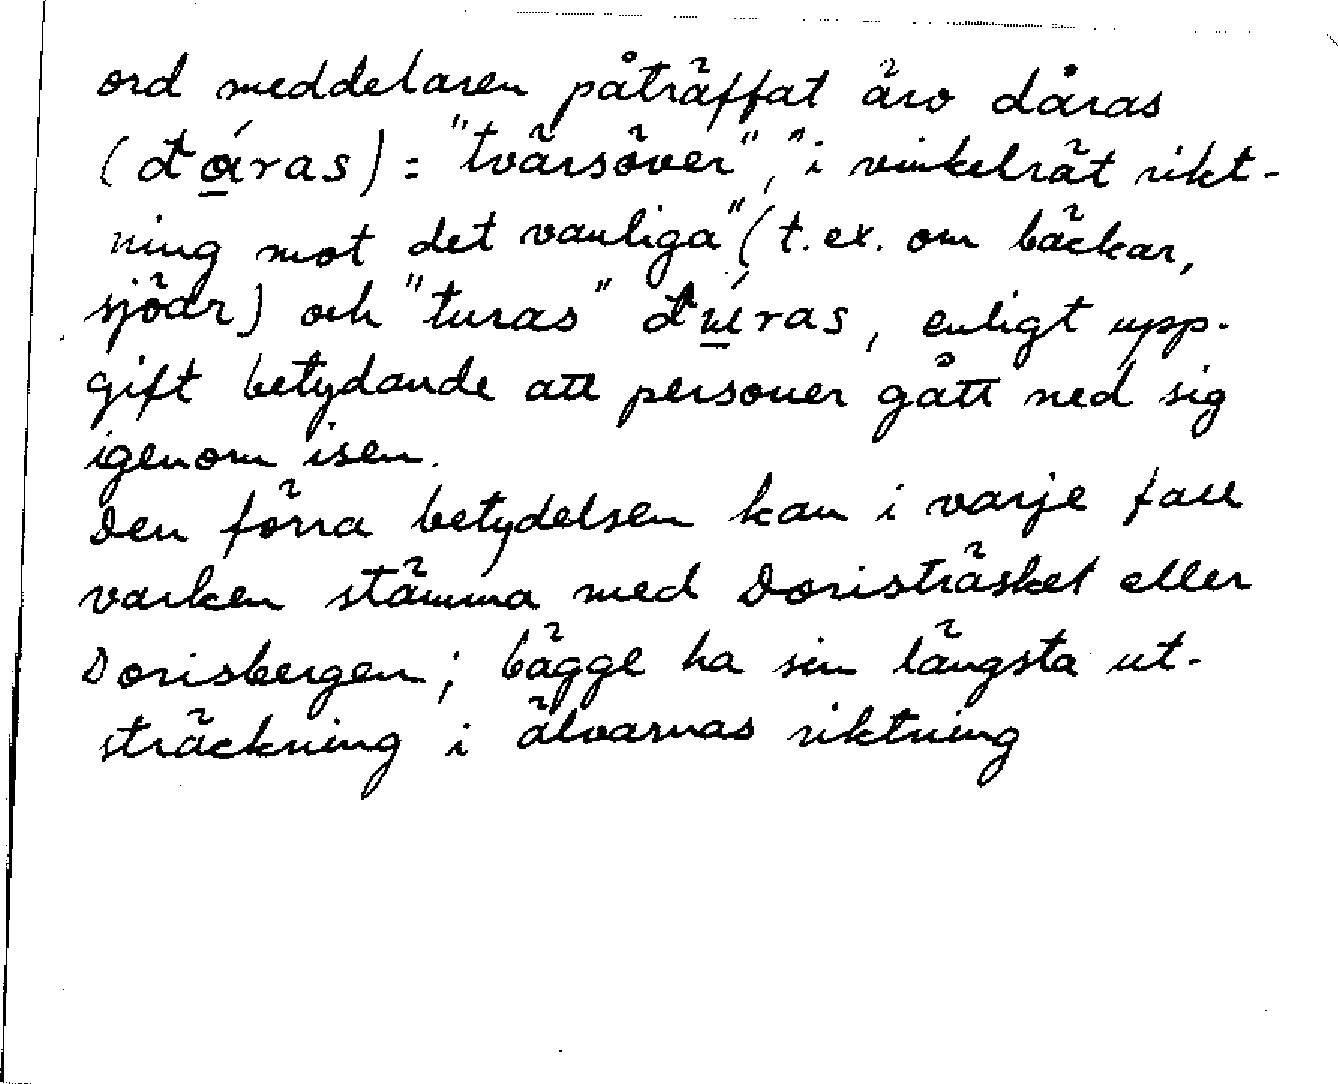 ord meddelaren påträffat äro dåras
(đá̲ras) = "tvärsöver", "i vinkelrät rikt-
ning mot det vanliga" (t.ex. om bäckar,
sjöar) och "turas" đú̲ras, enligt upp-
gift betydande att personer gått ned sig
igenom isen.
Den förra betydelsen kan i varje fall
varken stämma med Doristräsket eller
Dorisbergen; bägge ha sin längsta ut-
sträckning i älvarnas riktning